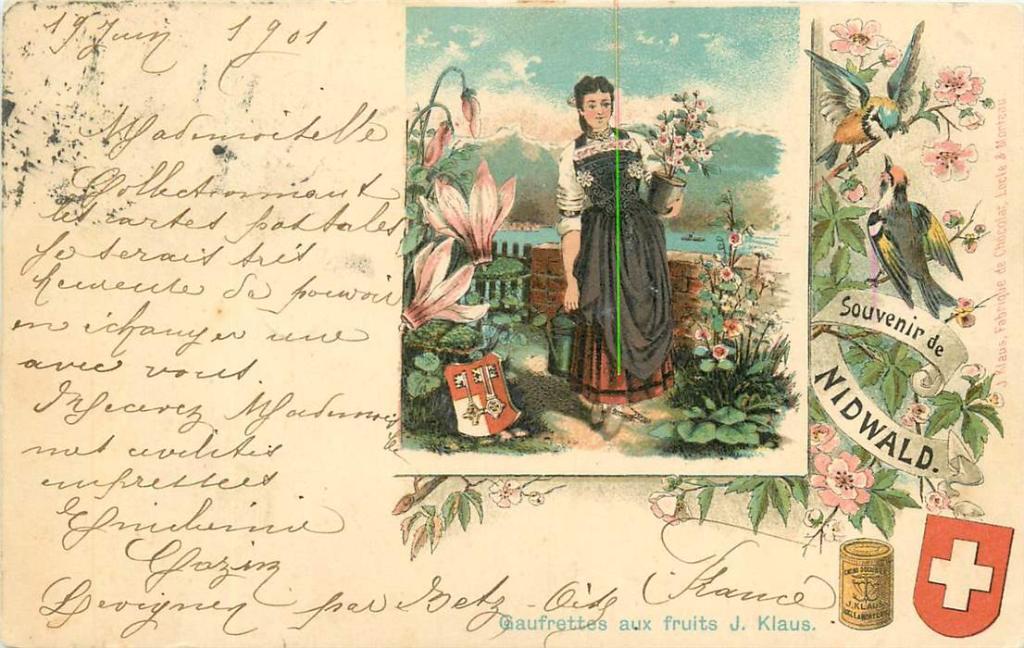 19 Juin 1901
Mademoiselle
Collectionnant
les cartes postales
je serais très
heureuse de pouvoir
en échanger une
avec vous
Recevez Mademoiselle
mes civilités
empressées
Lévignen par Betz Oise France
Souvenir de
NIDWALD.
J. Klaus, Fabrique de Chocolat, Locle & Morteau
J. KLAUS
Gaufrettes aux fruits J. Klaus.